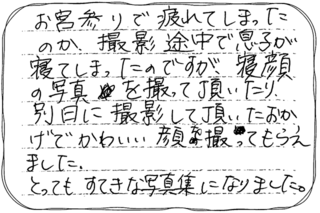 お宮参りで疲れてしまった
のか、撮影途中で息子が
寝てしまったのですが、寝顔
の写真を撮って頂いたり、
別日に撮影して頂いたおか
げでかわいい顔を撮ってもらえ
ました。
とってもすてきな写真集になりました。